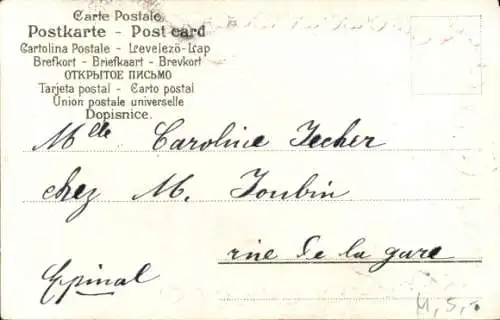 Carte Postale.
Postkarte - Post card
Cartolina Postale - Levelező-Lap
Brefkort - Briefkaart - Brevkort
ОТКРЫТОЕ ПИСЬМО
Tarjeta postal - Carto postal
Union postale universelle
Dopisnice.
Mlle Caroline Jecher
chez M. Joubin
rue de la gare
Epinal
M, S,